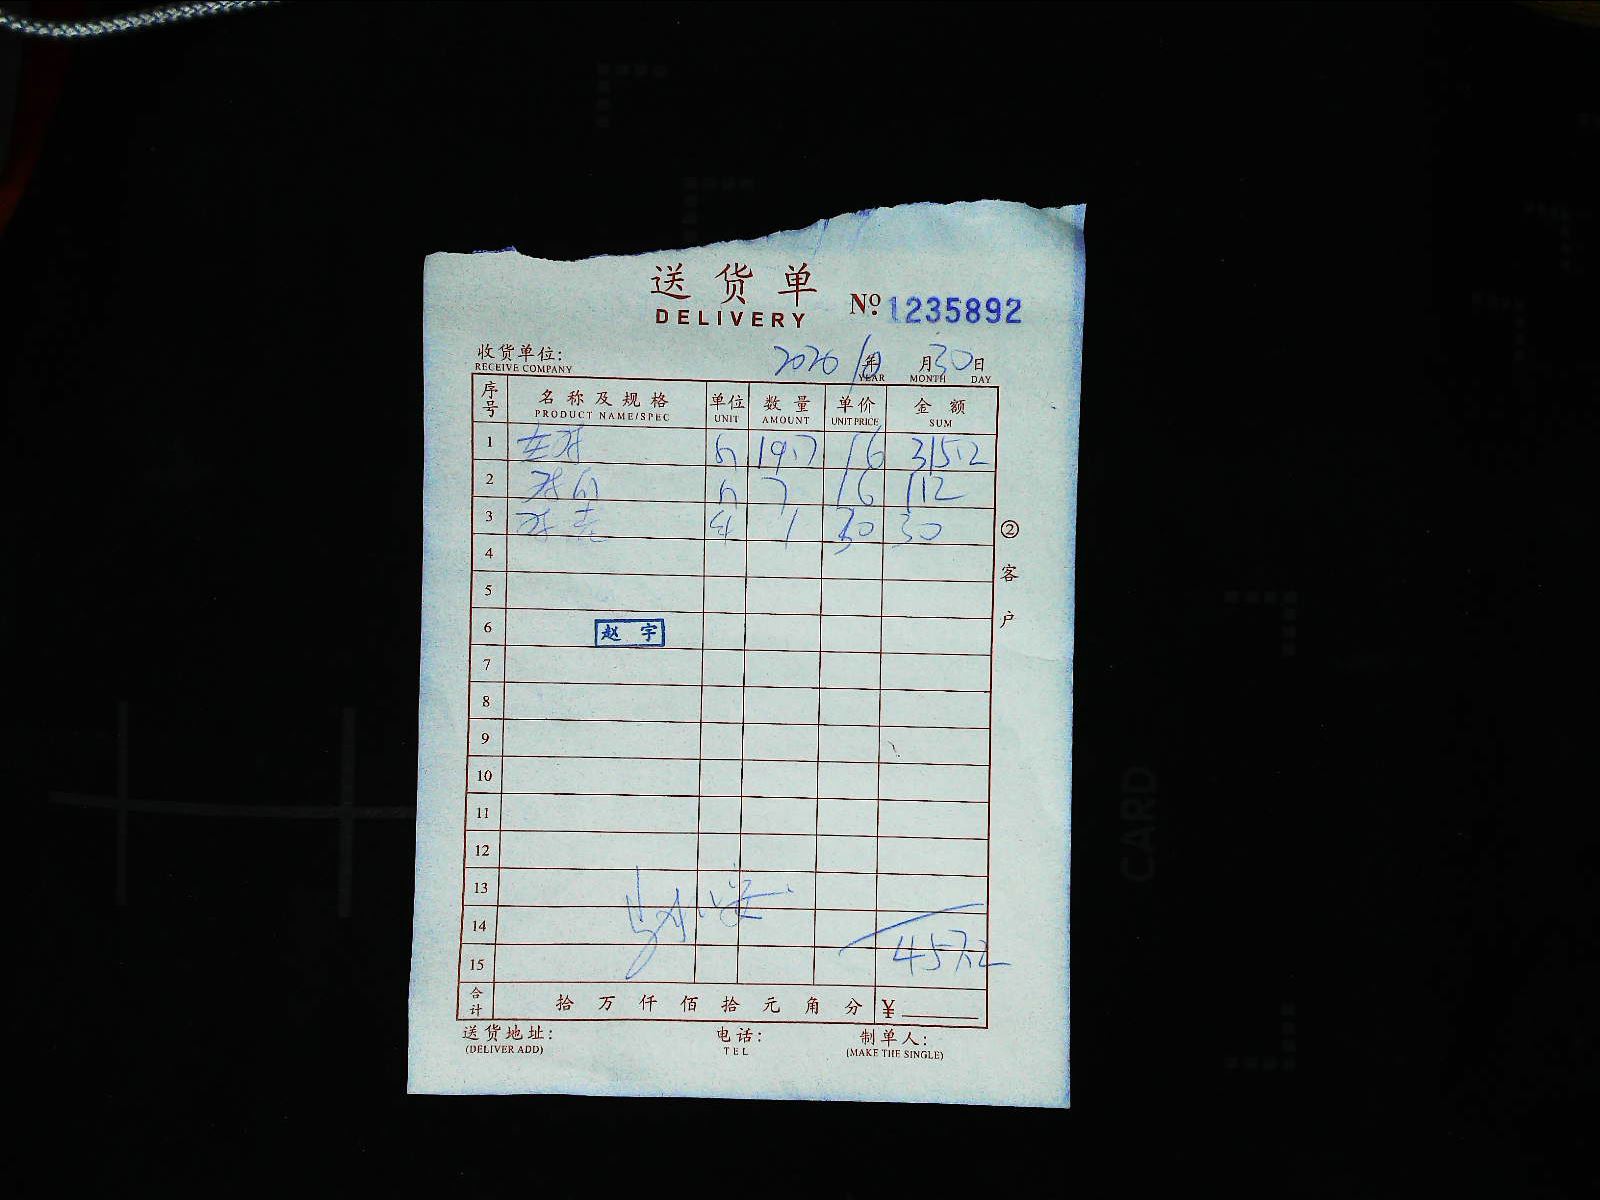 送货单
DELIVERY
№ 1235892
收货单位:
RECEIVE COMPANY
2020 年 月 30 日
YEAR MONTH DAY
序号 名称及规格 单位 数量 单价 金额
PRODUCT NAME/SPEC UNIT AMOUNT UNIT PRICE SUM
1 19.7 16 315.2
2 7 16 112
3 1 30 30
4
5
6 赵宇
7
8
9
10
11
12
13
14
457.2
15
合计 拾 万 仟 佰 拾 元 角 分 ¥
送货地址: 电话: 制单人:
(DELIVER ADD) TEL (MAKE THE SINGLE)
②客户
CARD